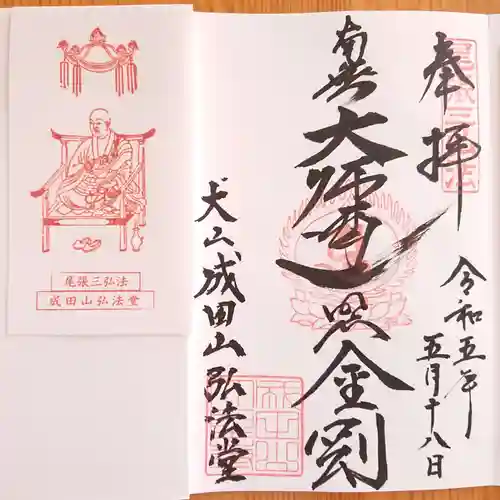 奉拝
尾張三弘法
令和五年
五月十八日
南無
大師遍照金剛
犬山成田山弘法堂
尾張三弘法
成田山弘法堂